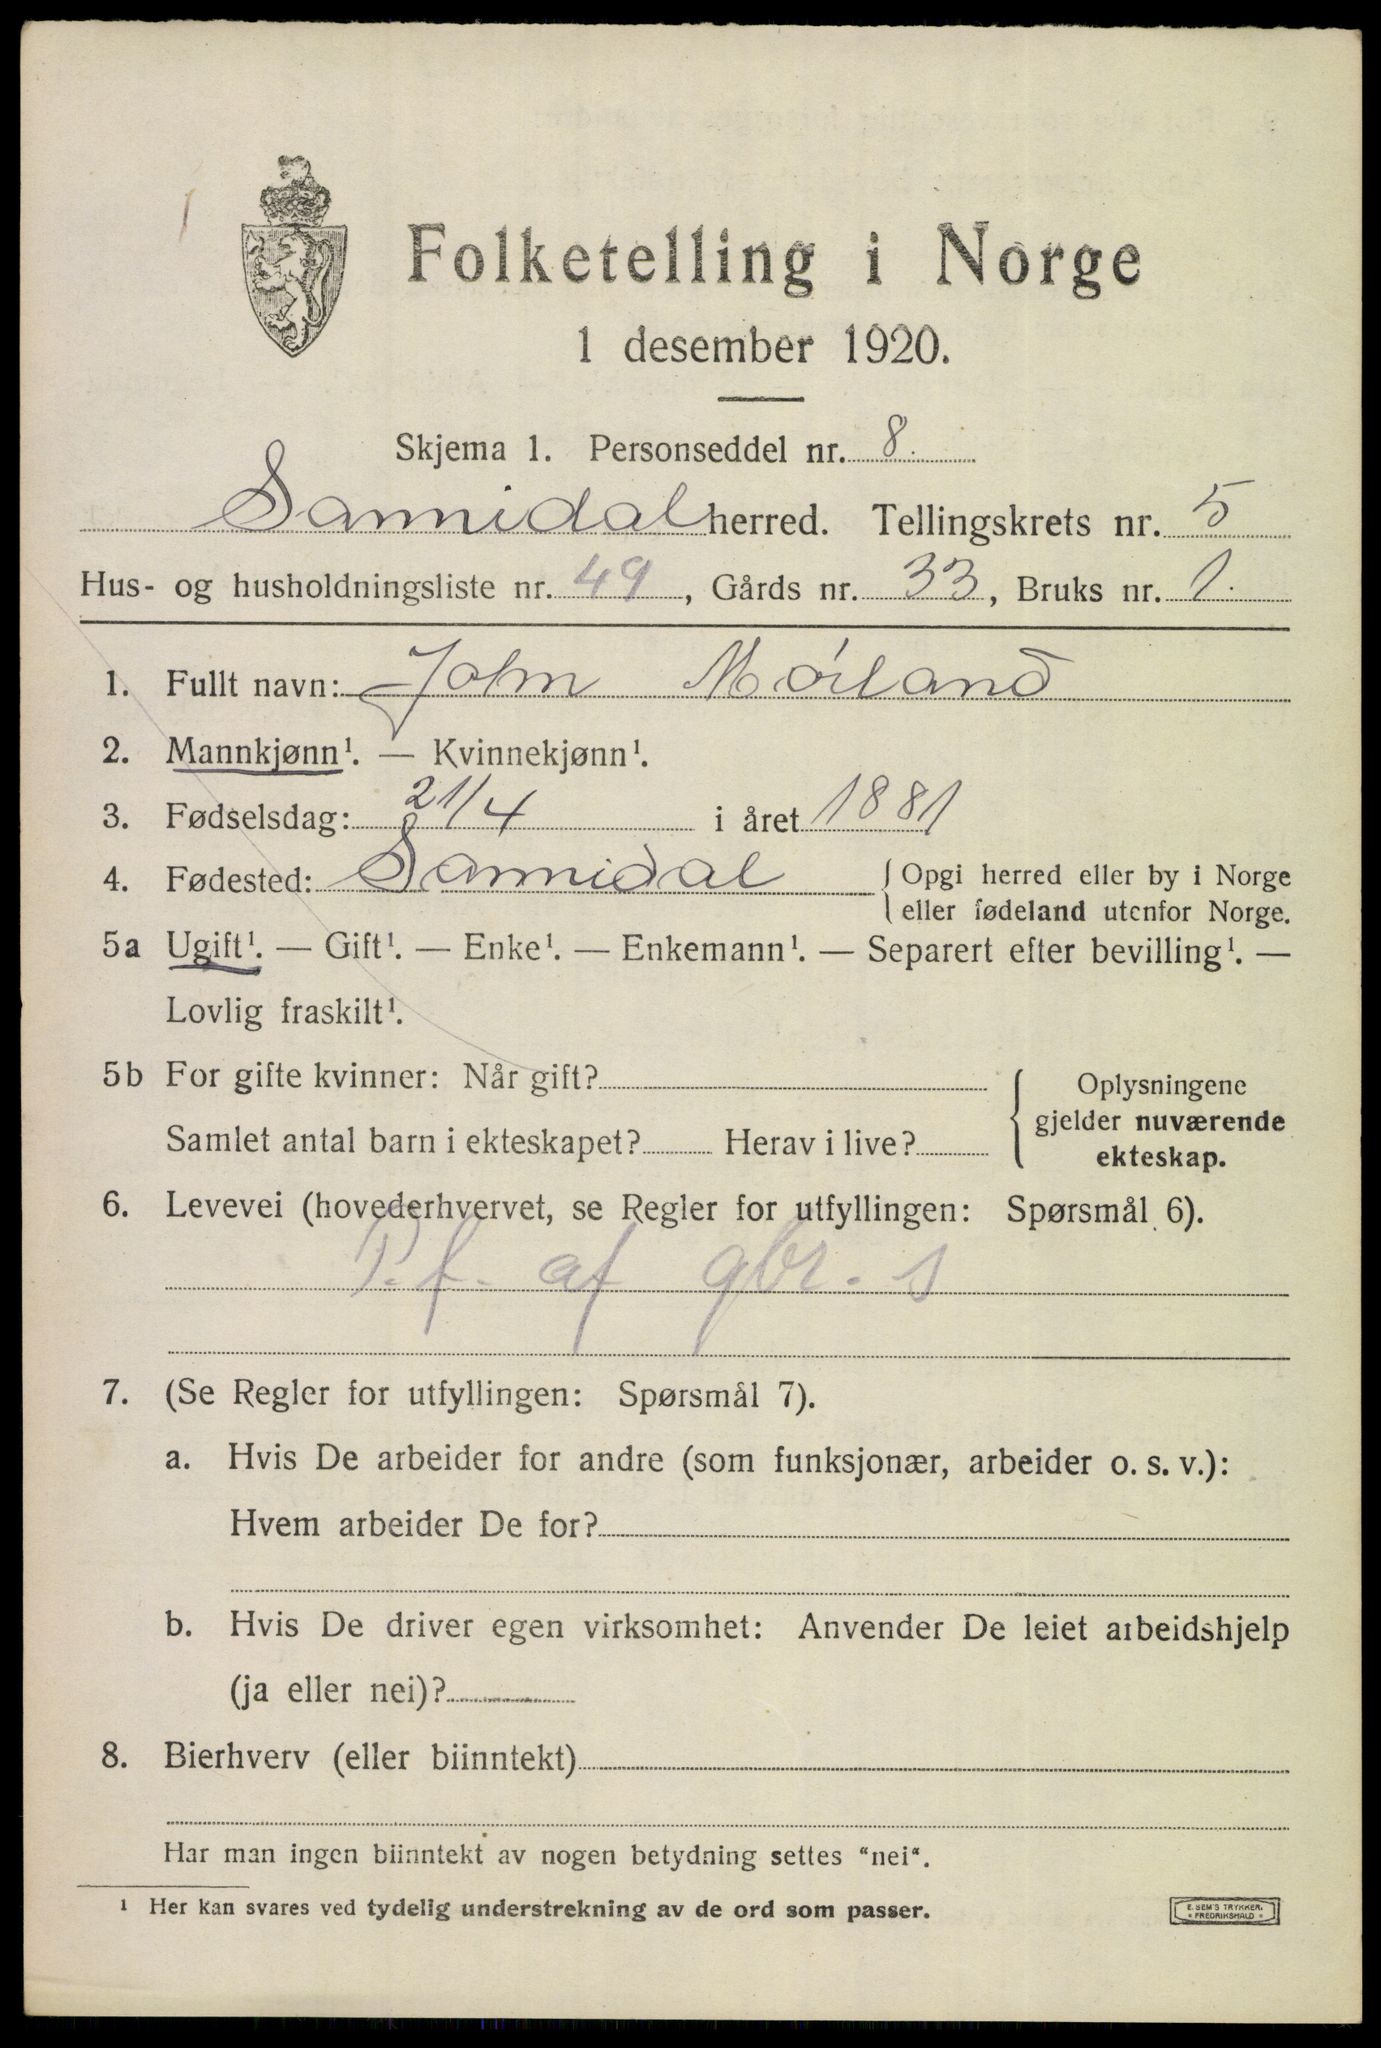 Folketelling i Norge
1 desember 1920.
Skjema 1. Personseddel nr. 8.
Sannidal herred. Tellingskrets nr. 5
Hus- og husholdningsliste nr. 49, Gårds nr. 33, Bruks nr. 1.
1. Fullt navn: John Mørland
2. Mannkjønn¹. — Kvinnekjønn¹.
3. Fødselsdag: 21/4 i året 1881
4. Fødested: Sannidal { Opgi herred eller by i Norge
eller fødeland utenfor Norge.
5a Ugift¹. — Gift¹. — Enke¹. — Enkemann¹. — Separert efter bevilling¹. —
Lovlig fraskilt¹.
5b For gifte kvinner: Når gift?
Samlet antal barn i ekteskapet? Herav i live?
{ Oplysningene
gjelder nuværende
ekteskap.
6. Levevei (hovederhvervet, se Regler for utfyllingen: Spørsmål 6).
P.f. af gbr. s
7. (Se Regler for utfyllingen: Spørsmål 7).
a. Hvis De arbeider for andre (som funksjonær, arbeider o. s. v.):
Hvem arbeider De for?
b. Hvis De driver egen virksomhet: Anvender De leiet arbeidshjelp
(ja eller nei)?
8. Bierhverv (eller biinntekt)
Har man ingen biinntekt av nogen betydning settes "nei".
¹ Her kan svares ved tydelig understrekning av de ord som passer.
E. SEM'S TRYKKERI
FREDRIKSHALD